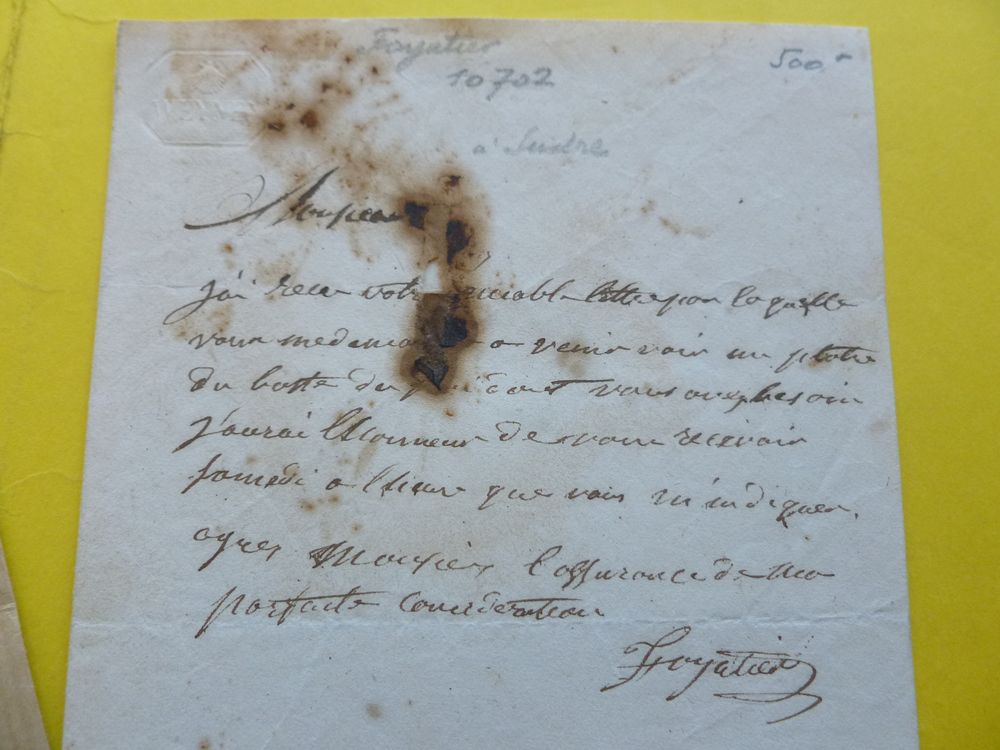 Foyatier
10702
500
à
Monsieur
j'ai recu votre lettre par laquelle
vous a venir voir un platre
du buste du dont vous avez besoin
j'aurai l'honneur de vous recevoir
samedi a l'heure que vous m'indiquer.
agrez Monsieur l'assurance de ma
parfaite consideration
Foyatier